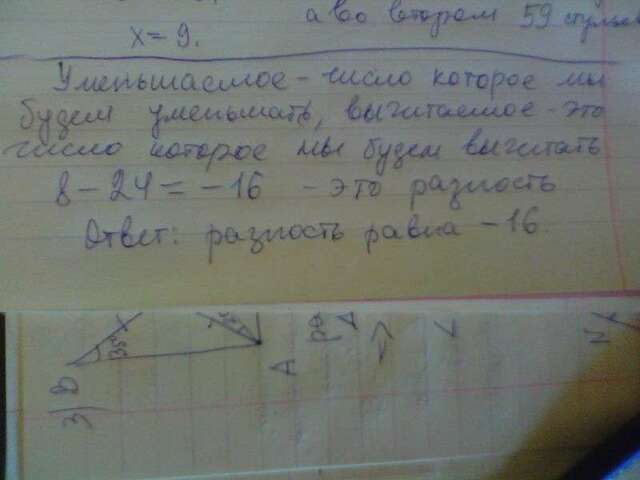 а во втором 59 стульев
x = 9.
Уменьшаемое - число которое мы
будем уменьшать, вычитаемое - это
число которое мы будем вычитать
8 - 24 = -16 - это разность
Ответ: разность равна -16.
3) D
35°
A